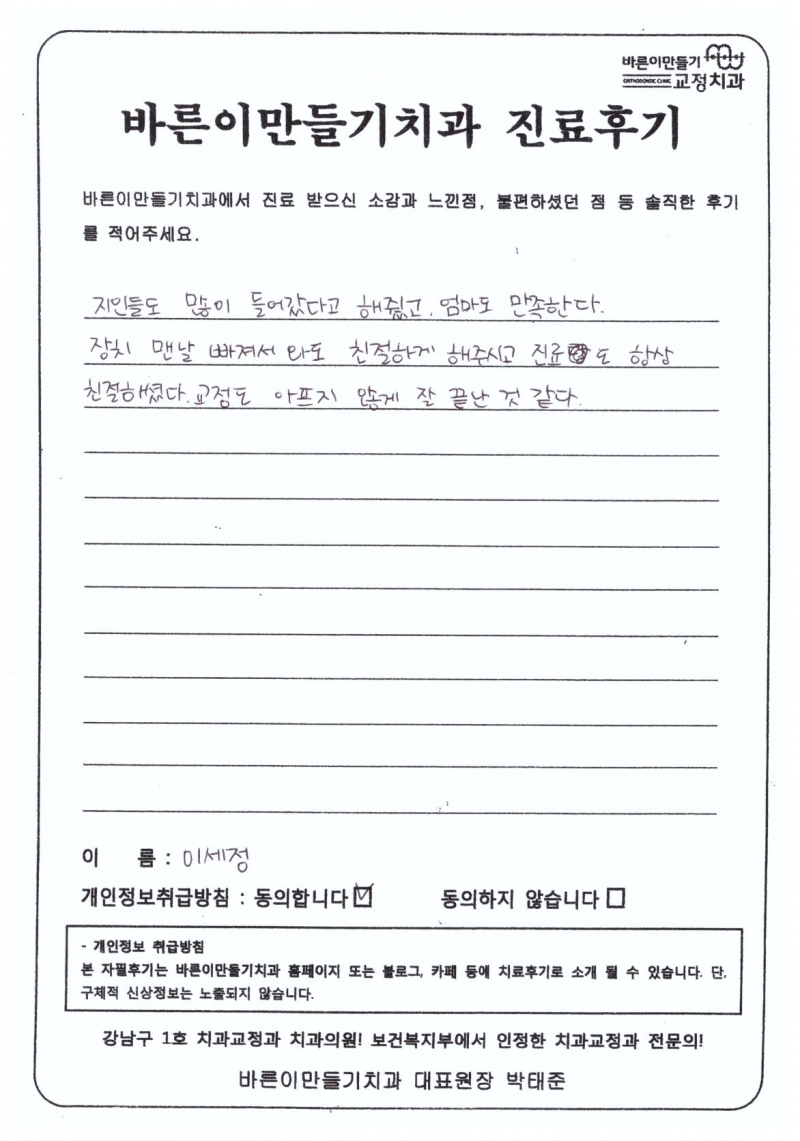 바른이만들기
ORTHODONTIC CLINIC 교정치과
바른이만들기치과 진료후기
바른이만들기치과에서 진료 받으신 소감과 느낀점, 불편하셨던 점 등 솔직한 후기
를 적어주세요.
지인들도 많이 들어갔다고 해줬고, 엄마도 만족한다.
장치 맨날 빠져서 와도 친절하게 해주시고 진료도 항상
친절해셨다. 교정도 아프지 않게 잘 끝난 것 같다.
이 름 : 이세정
개인정보취급방침 : 동의합니다 ☑ 동의하지 않습니다 ☐
- 개인정보 취급방침
본 자필후기는 바른이만들기치과 홈페이지 또는 블로그, 카페 등에 치료후기로 소개 될 수 있습니다. 단,
구체적 신상정보는 노출되지 않습니다.
강남구 1호 치과교정과 치과의원! 보건복지부에서 인정한 치과교정과 전문의!
바른이만들기치과 대표원장 박태준